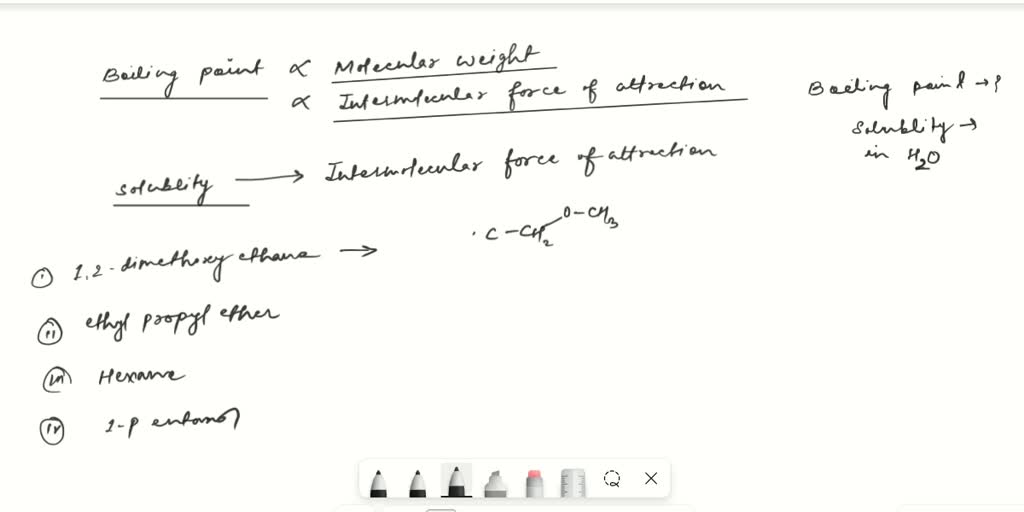 Boiling point ∝ Molecular weight
∝ Intermolecular force of attraction
Boiling point →
Solublity →
in H2O
solublity → Intermolecular force of attraction
(i) 1,2-dimethoxy ethane → C-CH2 O-CH3
(ii) ethyl propyl ether
(iii) Hexane
(iv) 1-pentanol